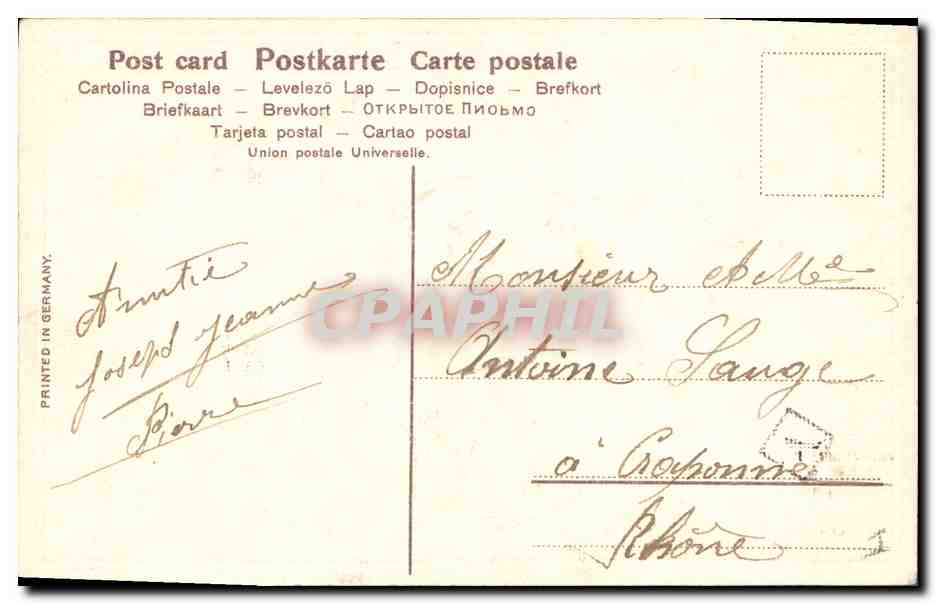 Post card Postkarte Carte postale
Cartolina Postale – Levelező Lap – Dopisnice – Brefkort
Briefkaart – Brevkort – ОТКРЫТОЕ ПИСЬМО
Tarjeta postal – Cartao postal
Union postale Universelle.
PRINTED IN GERMANY.
Amitié
Joseph Jeanne
Pierre
Monsieur & Me
Antoine Sauge
à Craponne
Rhône
T
CPAPHIL